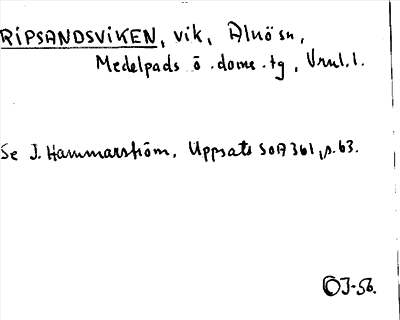 RIPSANDSVIKEN, vik, Alnö sn,
Medelpads ö. doms. tg, Vnrl. l.
Se J. Hammarström, Uppsats SOA 361, s. 63.
OJ-56.